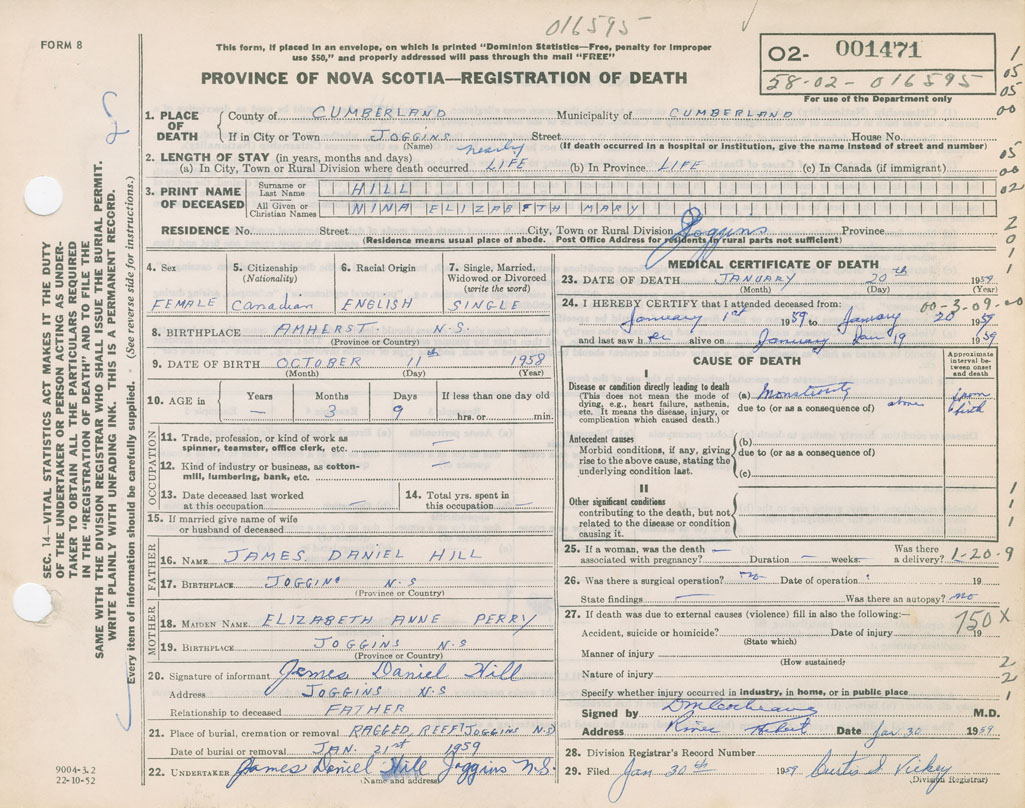 016595
FORM 8
This form, if placed in an envelope, on which is printed "Dominion Statistics—Free, penalty for improper
use $50," and properly addressed will pass through the mail "FREE"
PROVINCE OF NOVA SCOTIA—REGISTRATION OF DEATH
02- 001471
58-02-016595
For use of the Department only
SEC. 14—VITAL STATISTICS ACT MAKES IT THE DUTY
OF THE UNDERTAKER OR PERSON ACTING AS UNDER-
TAKER TO OBTAIN ALL THE PARTICULARS REQUIRED
IN THE "REGISTRATION OF DEATH" AND TO FILE THE
SAME WITH THE DIVISION REGISTRAR WHO SHALL ISSUE THE BURIAL PERMIT.
WRITE PLAINLY WITH UNFADING INK. THIS IS A PERMANENT RECORD.
Every item of information should be carefully supplied. (See reverse side for instructions.)
1. PLACE OF DEATH
County of CUMBERLAND Municipality of CUMBERLAND
If in City or Town JOGGINS Street House No.
(Name) (If death occurred in a hospital or institution, give the name instead of street and number)
2. LENGTH OF STAY (in years, months and days)
(a) In City, Town or Rural Division where death occurred nearly LIFE (b) In Province LIFE (c) In Canada (if immigrant)
3. PRINT NAME OF DECEASED
Surname or Last Name HILL
All Given or Christian Names NINA ELIZABETH MARY
RESIDENCE No. Street City, Town or Rural Division Joggins Province
(Residence means usual place of abode. Post Office Address for residents in rural parts not sufficient)
4. Sex FEMALE
5. Citizenship (Nationality) Canadian
6. Racial Origin ENGLISH
7. Single, Married, Widowed or Divorced (write the word) SINGLE
8. BIRTHPLACE AMHERST N.S.
(Province or Country)
9. DATE OF BIRTH OCTOBER 11th 1958
(Month) (Day) (Year)
10. AGE in Years — Months 3 Days 9 If less than one day old hrs. or min.
OCCUPATION
11. Trade, profession, or kind of work as spinner, teamster, office clerk, etc. —
12. Kind of industry or business, as cotton-mill, lumbering, bank, etc. —
13. Date deceased last worked at this occupation —
14. Total yrs. spent in this occupation —
15. If married give name of wife or husband of deceased
FATHER
16. NAME JAMES DANIEL HILL
17. BIRTHPLACE JOGGINS N.S
(Province or Country)
MOTHER
18. MAIDEN NAME ELIZABETH ANNE PERRY
19. BIRTHPLACE JOGGINS N.S
(Province or Country)
20. Signature of informant James Daniel Hill
Address JOGGINS N.S
Relationship to deceased FATHER
21. Place of burial, cremation or removal RAGGED REEF JOGGINS N.S
Date of burial or removal JAN. 21st 1959
22. UNDERTAKER James Daniel Hill Joggins N.S.
(Name and address)
9004-3.2
22-10-52
MEDICAL CERTIFICATE OF DEATH
23. DATE OF DEATH JANUARY 20th 1959
(Month) (Day) (Year)
24. I HEREBY CERTIFY that I attended deceased from: 00-3-09-00
January 1st 1959 to January 20 1959
and last saw her alive on January Jan 19 1959
CAUSE OF DEATH
Approximate interval between onset and death
I
Disease or condition directly leading to death
(This does not mean the mode of dying, e.g., heart failure, asthenia, etc. It means the disease, injury, or complication which caused death.)
(a) Monstrosity from birth
due to (or as a consequence of) above
Antecedent causes
Morbid conditions, if any, giving rise to the above cause, stating the underlying condition last.
(b)
due to (or as a consequence of)
(c)
II
Other significant conditions
contributing to the death, but not related to the disease or condition causing it.
25. If a woman, was the death associated with pregnancy? — Duration — weeks. Was there a delivery? 1-20-9
26. Was there a surgical operation? no Date of operation 19
State findings — Was there an autopsy? no
27. If death was due to external causes (violence) fill in also the following:—
750X
Accident, suicide or homicide? Date of injury 19
(State which)
Manner of injury
(How sustained)
Nature of injury
Specify whether injury occurred in industry, in home, or in public place
Signed by M.D.
Address River Hebert Date Jan 30 1959
28. Division Registrar's Record Number
29. Filed Jan 30th 1959 Curtis S Vickey
(Division Registrar)
1
05
05
00
05
00
02
2
0
1
1
1
1
2
2
1